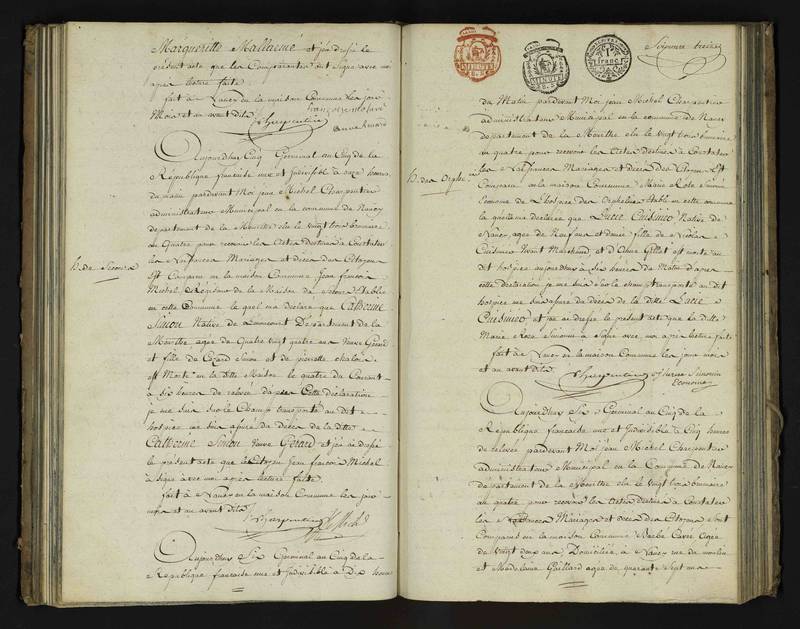 Margueritte Mallarmé et j'ai dressé le
présent acte que les Comparantes ont signé avec moi
après lecture faite
fait à Nancy en la maison Commune les jour
Mois et an avant dits
Charpentier
Aujourdhuy Cinq Germinal au Cinq de la
République française une et Indivisible à onze heures
du matin pardevant Moi jean Michel Charpentier
administrateur Municipal en la commune de Nancy
departement de la Meurthe élu le vingt trois brumaire
an Quatre pour recevoir les Actes destinés à Constater
les Naissances Mariages et décès des Citoyens
Est Comparu en la maison Commune Jean francois
Michel Régisseur de la Maison de Secours Etablie
en cette Commune le quel m'a déclaré que Catherine
Simon Native de Departement de la
Meurthe agée de Quatre vingt quatre ans Veuve Gerard
et fille de Simon et de pierrette
est Morte en la ditte Maison le quatre du Courant
à Six heures de relevée d'après Cette déclaration
je me suis sur le Champ transporté au dit
hospice me suis assuré du décès de la ditte
Catherine Simon Veuve Gerard et j'ai dressé
le présent acte que le Citoyen Jean francois Michel
a Signé avec moi après lecture faite
fait à Nancy en la maison Commune les jour
mois et an avant dits
Charpentier Michel
Aujourdhuy Six Germinal au Cinq de la
République française une et Indivisible à Dix heures
h. de Secours
MINUTE
MINUTE
1 franc
du Matin pardevant Moi jean Michel Charpentier
administrateur Municipal en la commune de Nancy
departement de la Meurthe élu le vingt trois brumaire
an quatre pour recevoir les actes destinés à Constater
les Naissances Mariages et décès des Citoyens Est
Comparu en la maison Commune Marie Rose
Econome de L'hospice des Orphelins Etabli en cette commune
la quelle m'a déclaré que Lucie Cuisinier Native de
Nancy agée de Neuf ans et demie fille de Nicolas
Cuisinier Vivant Marchand et d'Anne Gillet est morte au
dit hospice aujourdhuy à Six heures du Matin d'après
cette déclaration je me suis sur le champ transporté au dit
hospice me suis assuré du décès de la ditte Lucie
Cuisinier et j'ai dressé le présent acte que la ditte
Marie Rose a Signé avec moi après lecture faite
fait à Nancy en la maison Commune les jour mois
et an avant dits
Charpentier
Econome
Aujourdhuy Six Germinal au Cinq de la
République française une et Indivisible à Cinq heures
de relevée pardevant Moi jean Michel Charpentier
administrateur Municipal en la Commune de Nancy
departement de la Meurthe élu le vingt trois brumaire
an quatre pour recevoir les actes destinés à Constater
les Naissances Mariages et décès des Citoyens Sont
Comparus en la maison Commune Barbe agée
de Vingt deux ans Domiciliée à Nancy rue du moulin
et Madelaine Gaillard agée de quarante Sept ans
h. des Orphelins